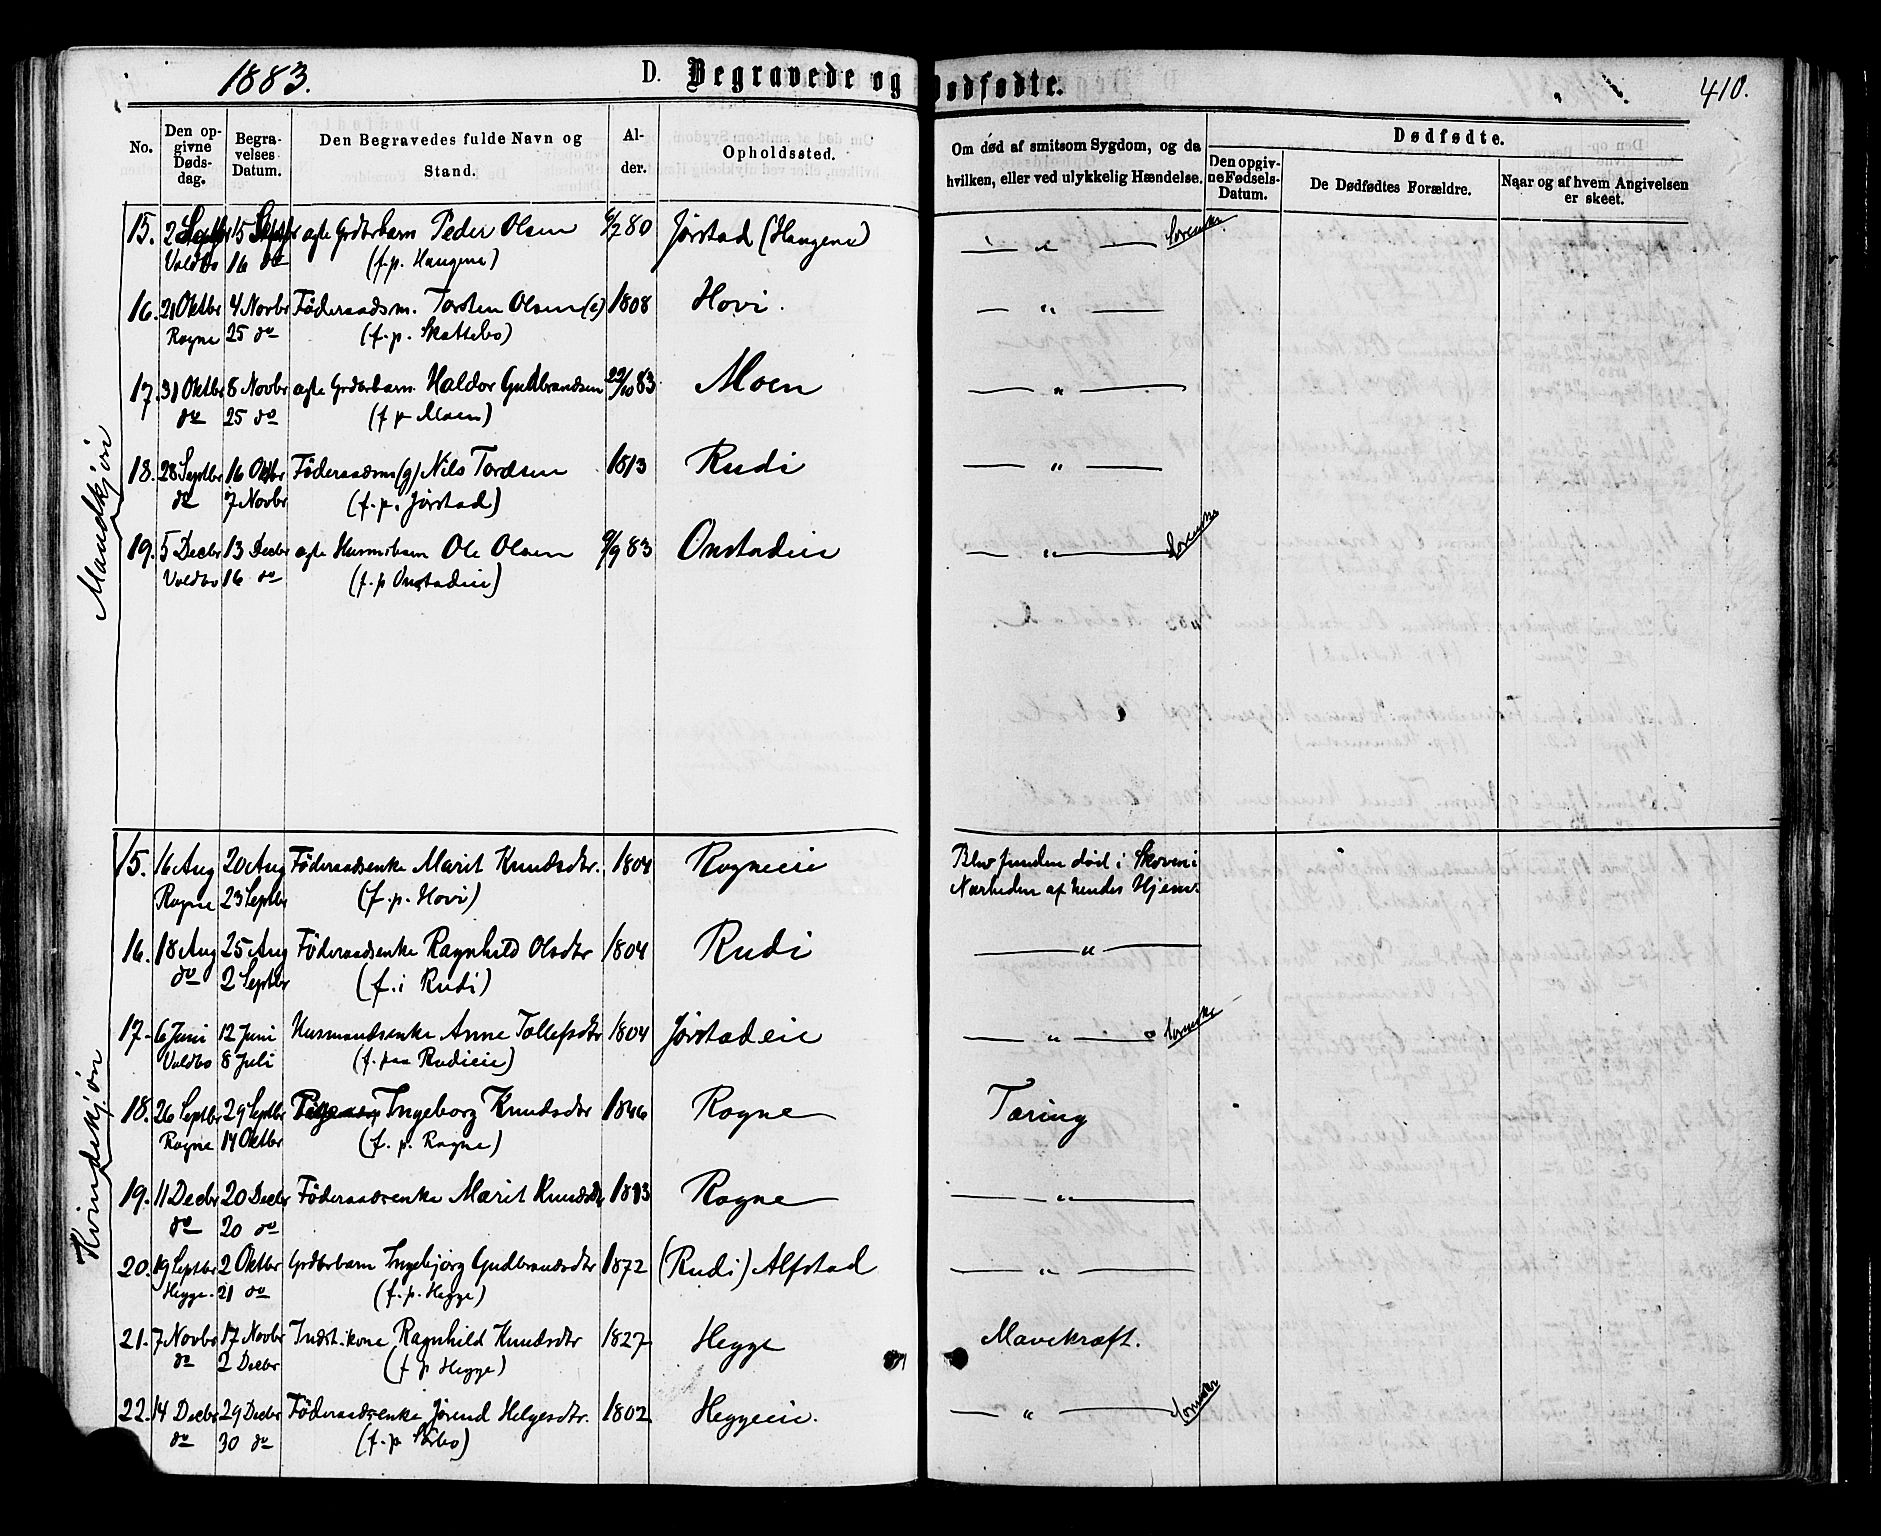 1883. D. Begravede og Dødfødte. 410.
No. Den opgivne Dødsdag. Begravelses Datum. Den Begravedes fulde Navn og Stand. Alder. Opholdssted. Om død af smitsom Sygdom, og da hvilken, eller ved ulykkelig Hændelse. Dødfødte. Den opgivne Fødsels-Datum. De Dødfødtes Forældre. Naar og af hvem Angivelsen er skeet.
Mandkjøn
15. 2 Septbr 15 Septbr ægte Grdbrbarn Peder Olsen 6/7 80 Jørstad (Haugene) — " —
Voldbo 16 do (f. p. Haugene)
16. 21 Oktbr 4 Novbr Föderaadsm. Torsten Olsen (e) 1808 Hovi. — " —
Rogne 25 do (f. p. Skattebo)
17. 31 Oktbr 8 Novbr ægte Grdbrbarn Haldor Gudbrandsen 22/10 83 Moen — " —
do 25 do (f p Moen)
18. 28 Septbr 16 Oktbr Föderaadsm (g) Nils Tordsen 1813 Rudi — " —
do 7 Novbr (f. p. Jørstad)
19. 5 Decbr 13 Decbr ægte Husmbarn Ole Olsen 9/9 83 Onstadeie — " —
Voldbo 16 do (f. p Onstadeie)
Kvindekjøn
15. 16 Aug 20 Aug Föderaadsenke Marit Knudsdtr. 1804 Rogneeie Blev funden død i Skoven i
Rogne 23 Septbr (f. p. Hovi) Nærheden af hendes Hjem.
16. 18 Aug 25 Aug Föderaadsenke Ragnhild Olsdtr 1804 Rudi — " —
do 2 Septbr (f. i Rudi)
17. 6 Juni 12 Juni Husmandsenke Anne Tollefsdtr 1804 Jørstadeie — " —
Voldbo 8 Juli (f. paa Rudieie)
18. 26 Septbr 29 Septbr Ingeborg Knudsdtr 1846 Rogne Tæring
Rogne 14 Oktbr (f. p. Rogne)
19. 11 Decbr 20 Decbr Föderaadsenke Marit Knudsdtr 1813 Rogne — " —
do 20 do
20. 19 Septbr 2 Oktbr Grdbrbarn Ingebjørg Gudbrandsdtr 1872 (Rudi) Alfstad — " —
Hegge. 21 do (f. p. Hegge)
21. 7 Novbr 17 Novbr Indst. kone Ragnhild Knudsdtr 1827 Hegge Mavekræft.
do 2 Decbr (f p Hegge)
22. 14 Decbr 29 Decbr Föderaadsenke Jørend Helgesdtr. 1802 Heggeeie. — " —
do 30 do (f. p Sørbo)